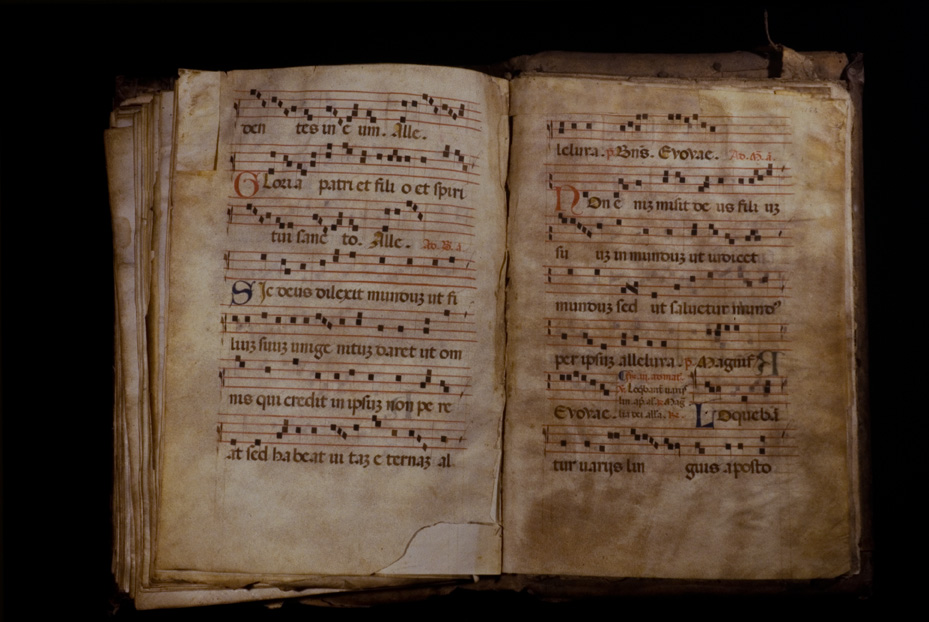 ven tes in e um. Alle.
Gloria patri et fili o et spiri
tui sanc to. Alle. Ad. B. a.
Sic deus dilexit munduz ut fi
liuz suuz unige nituz daret ut om
nis qui credit in ipsuz non pe re
at sed ha beat ui taz e ternaz al
leluia. p̄. Bn̄s. Evovae. Ad. M. a.
Non e niz misit de us fili uz
su uz in munduz ut iudicet
munduz sed ut saluetur mund⁹
per ipsuz alleluia. p̄. Magnif
Evovae. Loquebā
tur uarijs lin guis aposto